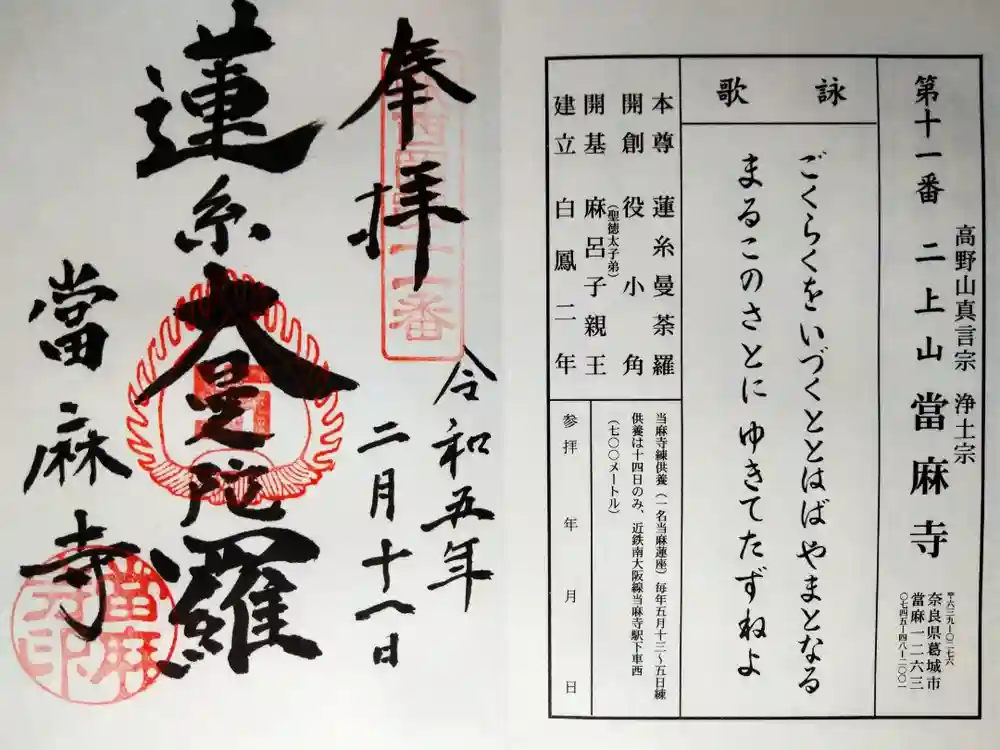 第十一番 二上山 當麻寺
高野山真言宗 浄土宗
〒六三九-〇二七六
奈良県葛城市
當麻一二六三
〇七四五-四八-二〇〇一
詠歌
ごくらくをいづくととはばやまとなる
まるこのさとにゆきてたずねよ
本尊 蓮糸曼荼羅
開創 役小角
(聖徳太子弟)
開基 麻呂子親王
建立 白鳳二年
当麻寺練供養(一名当麻蓮座)毎年五月十三〜五日練
供養は十四日のみ、近鉄南大阪線当麻寺駅下車西
(七〇〇メートル)
参拝 年 月 日
奉拝
令和五年
二月十八日
蓮糸大曼陀羅
當麻寺
十一番
當麻
寺印